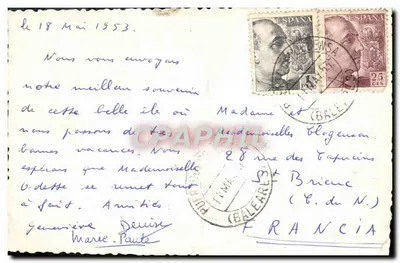 le 18 Mai 1953.
Nous vous envoyons
notre meilleur souvenir
de cette belle île où
nous passons de très
bonnes vacances. Nous
espérons que Mademoiselle
Odette se remet tout
à fait. Amitiés
Geneviève Denise
Marie-Paule
Madame et
Mesdemoiselles
28 rue des Capucins
St Brieuc
(C. du N.)
FRANCIA
ESPAÑA
ESPAÑA
25
CTS
(BALEARES)
(BALEARES)